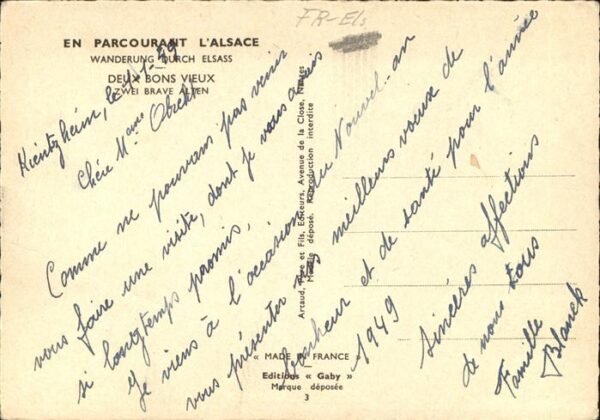 FR-Els
EN PARCOURANT L'ALSACE
WANDERUNG DURCH ELSASS
DEUX BONS VIEUX
ZWEI BRAVE ALTEN
Kientzheim, le 1-1-49
Chère Mme Obrecht
Comme ne pouvons pas venir
vous faire une visite, dont je vous avais
si longtemps promis,
Je viens à l'occasion du Nouvel-an
vous présenter nos meilleurs voeux de
bonheur et de santé pour l'année
1949
Sincères affections
de nous tous
Famille
Blanck
Artaud, Père et Fils, Editeurs, Avenue de la Close, Nantes
Modèle déposé. Reproduction interdite
« MADE IN FRANCE »
Editions « Gaby »
Marque déposée
3